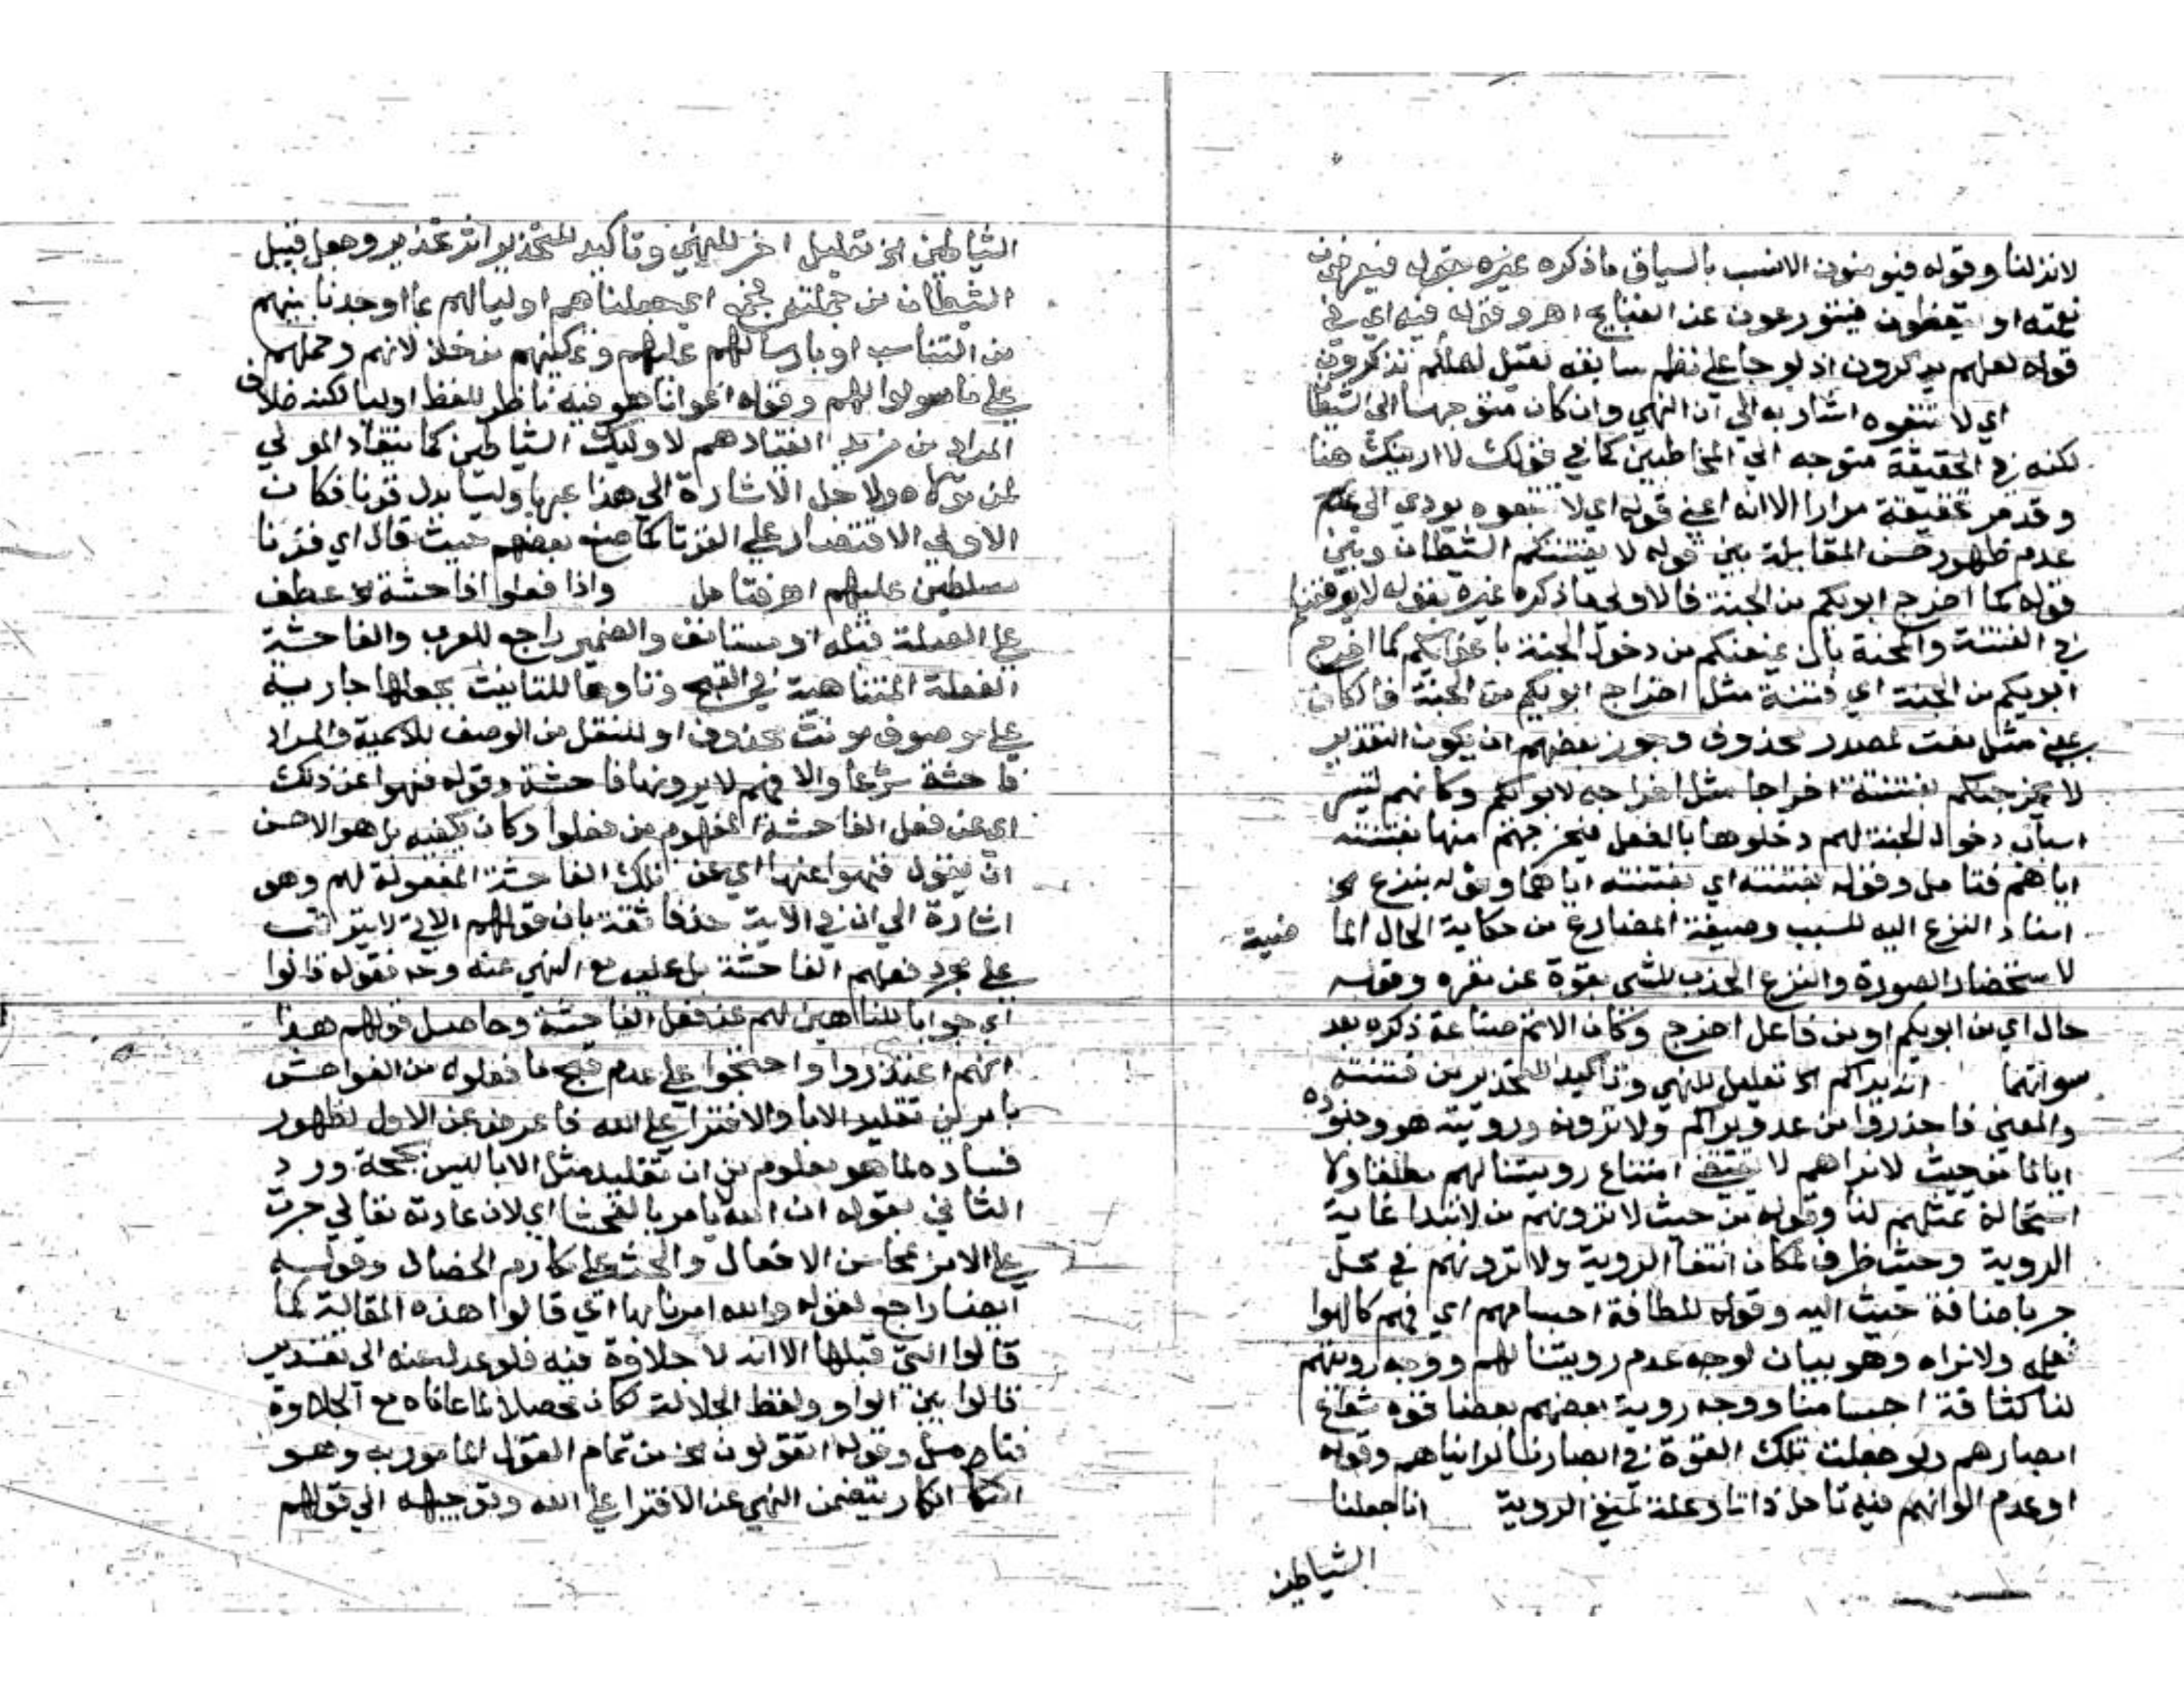 لانزلنا وقوله فيومنون الانسب بالسياق ما ذكره غيره بقوله فيعرفون
نعمته او يتعظون فيتورعون عن القبايح اهـ وقوله فيه اي في
قوله لعلهم يذكرون اذ لو جا على نظم سابقه لقيل لعلكم تذكرون
اي لا تتبعوه اشار به الي ان النهي وان كان متوجها الي الشيطا
لكنه في الحقيقة متوجه الي المخاطبين كما في قولك لا ارينك هنا
وقد مر تحقيقه مرارا الا انه اعني قوله اي لا تتبعوه يودي الي
عدم ظهور حسن المقابلة بين قوله لا يفتننكم الشيطان وبين
قوله كما اخرج ابويكم من الجنة فالاولي ما ذكره غيره بقوله لا يوقعنكم
في الفتنة والمحنة بان يمنعكم من دخول الجنة باغوايكم كما اخرج
ابويكم من الجنة اي فتنة مثل اخراج ابويكم من الجنة فالكاف
بمعني مثل نعت لمصدر محذوف وجوز بعضهم ان يكون التقدير
لا يخرجنكم بفتنته اخراجا مثل اخراجه لابويكم وكانهم لتيسر
اسباب دخول الجنة لهم دخلوها بالفعل فيخرجهم منها بفتنته
اياهم فتامل وقوله بفتنته اي بفتنته اياهما وقوله ينزع
اسناد النزع اليه للسبب وصيغة المضارع من حكاية الحال الما ضية
لاستحضار الصورة والنزع الجذب للشي بقوة عن مقره وقوله
حال اي من ابويكم او من فاعل اخرج وكان الانسب صناعة ذكره بعد
سواتهما انه يراكم الخ تعليل للنهي وتاكيد للتحذير من فتنته
والمعني فاحذروا من عدو يراكم ولا ترونه ورويته هو وجنوده
ايانا من حيث لا نراهم لا يقتضي امتناع رويتنا لهم مطلقا ولا
استحالة تمثلهم لنا وقوله من حيث لا ترونهم من لابتدا غاية
الروية وحيث ظرف لمكان انتفا الروية ولا ترونهم في محل
جر باضافة حيث اليه وقوله للطافة اجسامهم اي فهم كالهوا
نعلمه ولا نراه وهو بيان لوجه عدم رويتنا لهم ووجه رويتهم
لنا كثافة اجسامنا ووجه روية بعضهم بعضا قوة شعاع
ابصارهم ولو جعلت تلك القوة في ابصارنا لرايناهم وقوله
او عدم الوانهم فيه تامل ذاتا وعلة لمنع الروية انا جعلنا
الشياطين
الشياطين الخ تعليل اخر للنهي وتاكيد للتحذير اثر تحذير وجعل قبيل
الشيطان من جملته جمع اي جعلناهم اوليا لهم بما اوجدنا بينهم
من التناسب او بارسالهم عليهم وتمكينهم من خذلانهم وحملهم
علي ما سولوا لهم وقوله اعوانا هو فيه ناظر للفظ اوليا لكنه خلاف
المراد من مزيد انقيادهم لاوليك الشياطين كما ينقاد المولي
لمن تولاه ولاجل الاشارة الي هذا عبر باوليا بدل قرنا فكان
الاولي الاقتصار علي القرنا كما صنع بعضهم حيث قال اي قرنا
مسلطين عليهم اهـ فتامل واذا فعلوا فاحشة الخ عطف
علي الصلة قبله او مستانف والضمير راجع للعرب والفاحشة
الفعلة المتناهية في القبح وتاوها للتانيث بجعلها جارية
علي موصوف مونث محذوف او للنقل من الوصف للاسمية والمراد
فاحشة شرعا والا فهم لا يرونها فاحشة وقوله فنهوا عن ذلك
اي عن فعل الفاحشة المفهوم من فعلوا وكان يكفيه بل هو الاحسن
ان يقول فنهوا عنها اي عن تلك الفاحشة المفعولة لهم وهو
اشارة الي ان في الاية حذفا ثقة بان قولهم الاتي لا يترتب
علي مجرد فعلهم الفاحشة بل عليه مع النهي عنه وح فقوله قالوا
اي جوابا للناهين لهم عن فعل الفاحشة وحاصل قولهم هذا
انهم اعتذروا واحتجوا علي عدم قبح ما فعلوه من الفواحش
بامرين تقليد الابا والافترا علي الله فاعرض عن الاول لظهور
فساده لما هو معلوم من ان تقليد مثل الابا ليس بحجة ورد
الثاني بقوله ان الله لا يامر بالفحشا اي لان عادته تعالي جرت
علي الامر بمحاسن الافعال والحث علي مكارم الخصال وقوله
ايضا راجع لقوله والله امرنا بها اي قالوا هذه المقالة كما
قالوا التي قبلها الا انه لا حلاوة فيه فلو عدل عنه الي تقدير
قالوا بين الواو ولفظ الجلالة لكان محصلا لما عاناه مع الحلاوة
فتامل وقوله اتقولون الخ من تمام القول المامور به وهو
انكار يتضمن النهي عن الافترا علي الله وتوجيهه الي قولهم